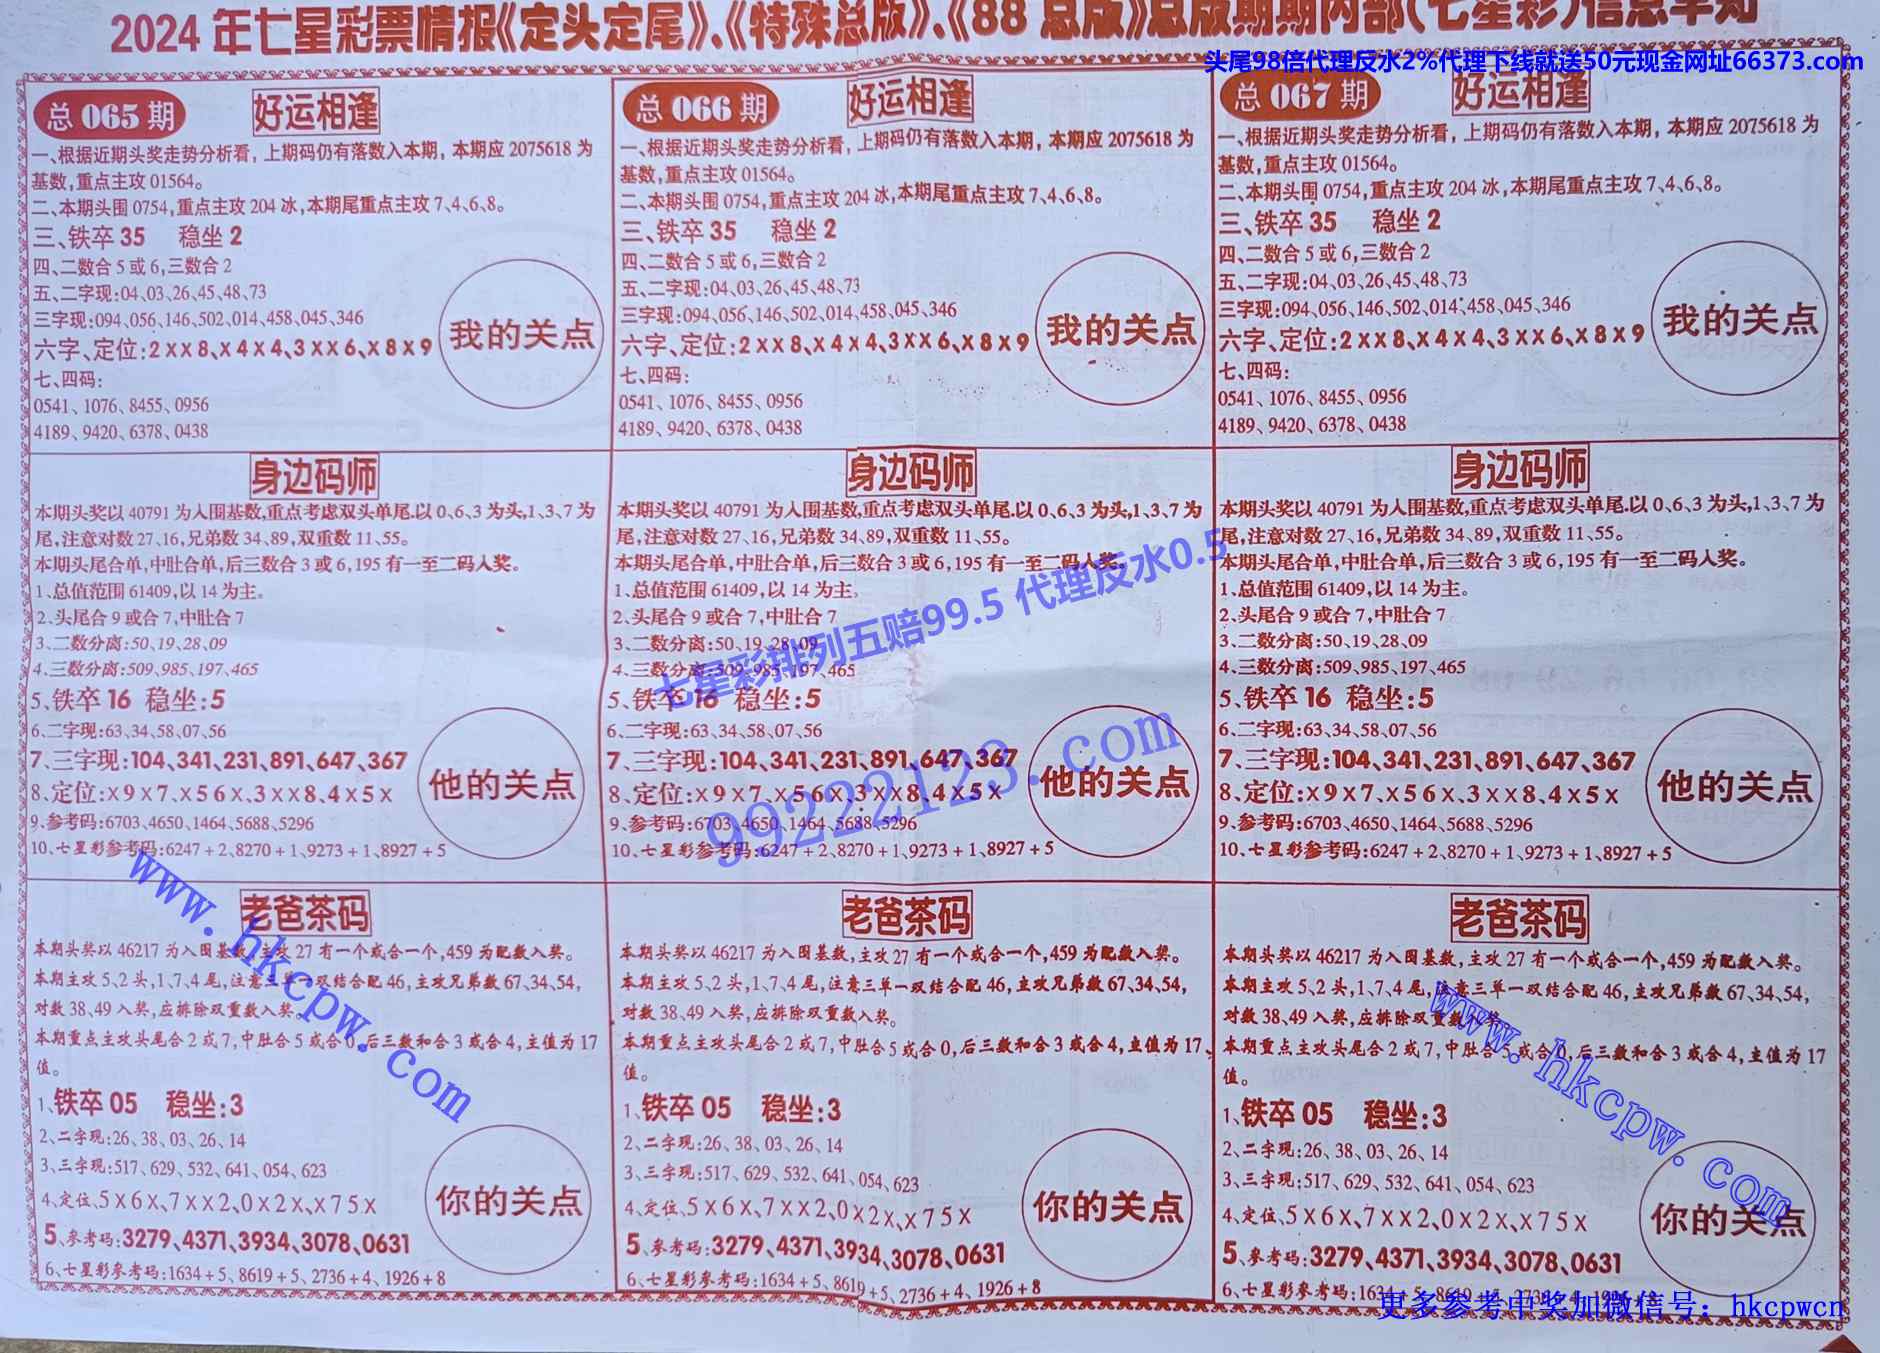 2024年七星彩票情报《定头定尾》、《特殊总版》、《88总版》总版期期内部(七星彩)信息早知
头尾98倍代理反水2%代理下线就送50元现金网址66373.com
总065期 好运相逢
一、根据近期头奖走势分析看,上期码仍有落数入本期,本期应2075618为
基数,重点主攻01564。
二、本期头围0754,重点主攻204冰,本期尾重点主攻7、4、6、8。
三、铁卒35 稳坐2
四、二数合5或6,三数合2
五、二字现:04、03、26、45、48、73
三字现:094、056、146、502、014、458、045、346
六字、定位:2××8、×4×4、3××6、×8×9
七、四码:
0541、1076、8455、0956
4189、9420、6378、0438
我的关点
总066期 好运相逢
一、根据近期头奖走势分析看,上期码仍有落数入本期,本期应2075618为
基数,重点主攻01564。
二、本期头围0754,重点主攻204冰,本期尾重点主攻7、4、6、8。
三、铁卒35 稳坐2
四、二数合5或6,三数合2
五、二字现:04、03、26、45、48、73
三字现:094、056、146、502、014、458、045、346
六字、定位:2××8、×4×4、3××6、×8×9
七、四码:
0541、1076、8455、0956
4189、9420、6378、0438
我的关点
总067期 好运相逢
一、根据近期头奖走势分析看,上期码仍有落数入本期,本期应2075618为
基数,重点主攻01564。
二、本期头围0754,重点主攻204冰,本期尾重点主攻7、4、6、8。
三、铁卒35 稳坐2
四、二数合5或6,三数合2
五、二字现:04、03、26、45、48、73
三字现:094、056、146、502、014、458、045、346
六字、定位:2××8、×4×4、3××6、×8×9
七、四码:
0541、1076、8455、0956
4189、9420、6378、0438
我的关点
身边码师
本期头奖以40791为入围基数,重点考虑双头单尾.以0、6、3为头,1、3、7为
尾,注意对数27、16,兄弟数34、89,双重数11、55。
本期头尾合单,中肚合单,后三数合3或6,195有一至二码入奖。
1、总值范围61409,以14为主。
2、头尾合9或合7,中肚合7
3、二数分离:50、19、28、09
4、三数分离:509、985、197、465
5、铁卒16 稳坐:5
6、二字现:63、34、58、07、56
7、三字现:104、341、231、891、647、367
8、定位:×9×7、×56×、3××8、4×5×
9、参考码:6703、4650、1464、5688、5296
10、七星彩参考码:6247+2、8270+1、9273+1、8927+5
他的关点
身边码师
本期头奖以40791为入围基数,重点考虑双头单尾.以0、6、3为头,1、3、7为
尾,注意对数27、16,兄弟数34、89,双重数11、55。
本期头尾合单,中肚合单,后三数合3或6,195有一至二码入奖。
1、总值范围61409,以14为主。
2、头尾合9或合7,中肚合7
3、二数分离:50、19、28、09
4、三数分离:509、985、197、465
5、铁卒16 稳坐:5
6、二字现:63、34、58、07、56
7、三字现:104、341、231、891、647、367
8、定位:×9×7、×56×、3××8、4×5×
9、参考码:6703、4650、1464、5688、5296
10、七星彩参考码:6247+2、8270+1、9273+1、8927+5
他的关点
七星彩排列五赔99.5 代理反水0.5
99222123.com
身边码师
本期头奖以40791为入围基数,重点考虑双头单尾.以0、6、3为头,1、3、7为
尾,注意对数27、16,兄弟数34、89,双重数11、55。
本期头尾合单,中肚合单,后三数合3或6,195有一至二码入奖。
1、总值范围61409,以14为主。
2、头尾合9或合7,中肚合7
3、二数分离:50、19、28、09
4、三数分离:509、985、197、465
5、铁卒16 稳坐:5
6、二字现:63、34、58、07、56
7、三字现:104、341、231、891、647、367
8、定位:×9×7、×56×、3××8、4×5×
9、参考码:6703、4650、1464、5688、5296
10、七星彩参考码:6247+2、8270+1、9273+1、8927+5
他的关点
老爸茶码
本期头奖以46217为入围基数,主攻27有一个或合一个,459为配数入奖。
本期主攻5、2头,1、7、4尾,注意三单一双结合配46,主攻兄弟数67、34、54,
对数38、49入奖,应排除双重数入奖。
本期重点主攻头尾合2或7,中肚合5或合0,后三数和合3或合4,主值为17
值。
1、铁卒05 稳坐:3
2、二字现:26、38、03、26、14
3、三字现:517、629、532、641、054、623
4、定位、5×6×、7××2、0×2×、×75×
5、参考码:3279、4371、3934、3078、0631
6、七星彩参考码:1634+5、8619+5、2736+4、1926+8
你的关点
www.hkcpw.com
老爸茶码
本期头奖以46217为入围基数,主攻27有一个或合一个,459为配数入奖。
本期主攻5、2头,1、7、4尾,注意三单一双结合配46,主攻兄弟数67、34、54,
对数38、49入奖,应排除双重数入奖。
本期重点主攻头尾合2或7,中肚合5或合0,后三数和合3或合4,主值为17、
值。
1、铁卒05 稳坐:3
2、二字现:26、38、03、26、14
3、三字现:517、629、532、641、054、623
4、定位、5×6×、7××2、0×2×、×75×
5、参考码:3279、4371、3934、3078、0631
6、七星彩参考码:1634+5、8619+5、2736+4、1926+8
你的关点
老爸茶码
本期头奖以46217为入围基数,主攻27有一个或合一个,459为配数入奖。
本期主攻5、2头,1、7、4尾,注意三单一双结合配46,主攻兄弟数67、34、54,
对数38、49入奖,应排除双重数入奖
本期重点主攻头尾合2或7,中肚合5或合0,后三数和合3或合4,主值为17
值。
1、铁卒05 稳坐:3
2、二字现:26、38、03、26、14
3、三字现:517、629、532、641、054、623
4、定位、5×6×、7××2、0×2×、×75×
5、参考码:3279、4371、3934、3078、0631
6、七星彩参考码:1634+5、8619+5、2736+4、1926+8
你的关点
www.hkcpw.com
更多参考中奖加微信号:hkcpwcn